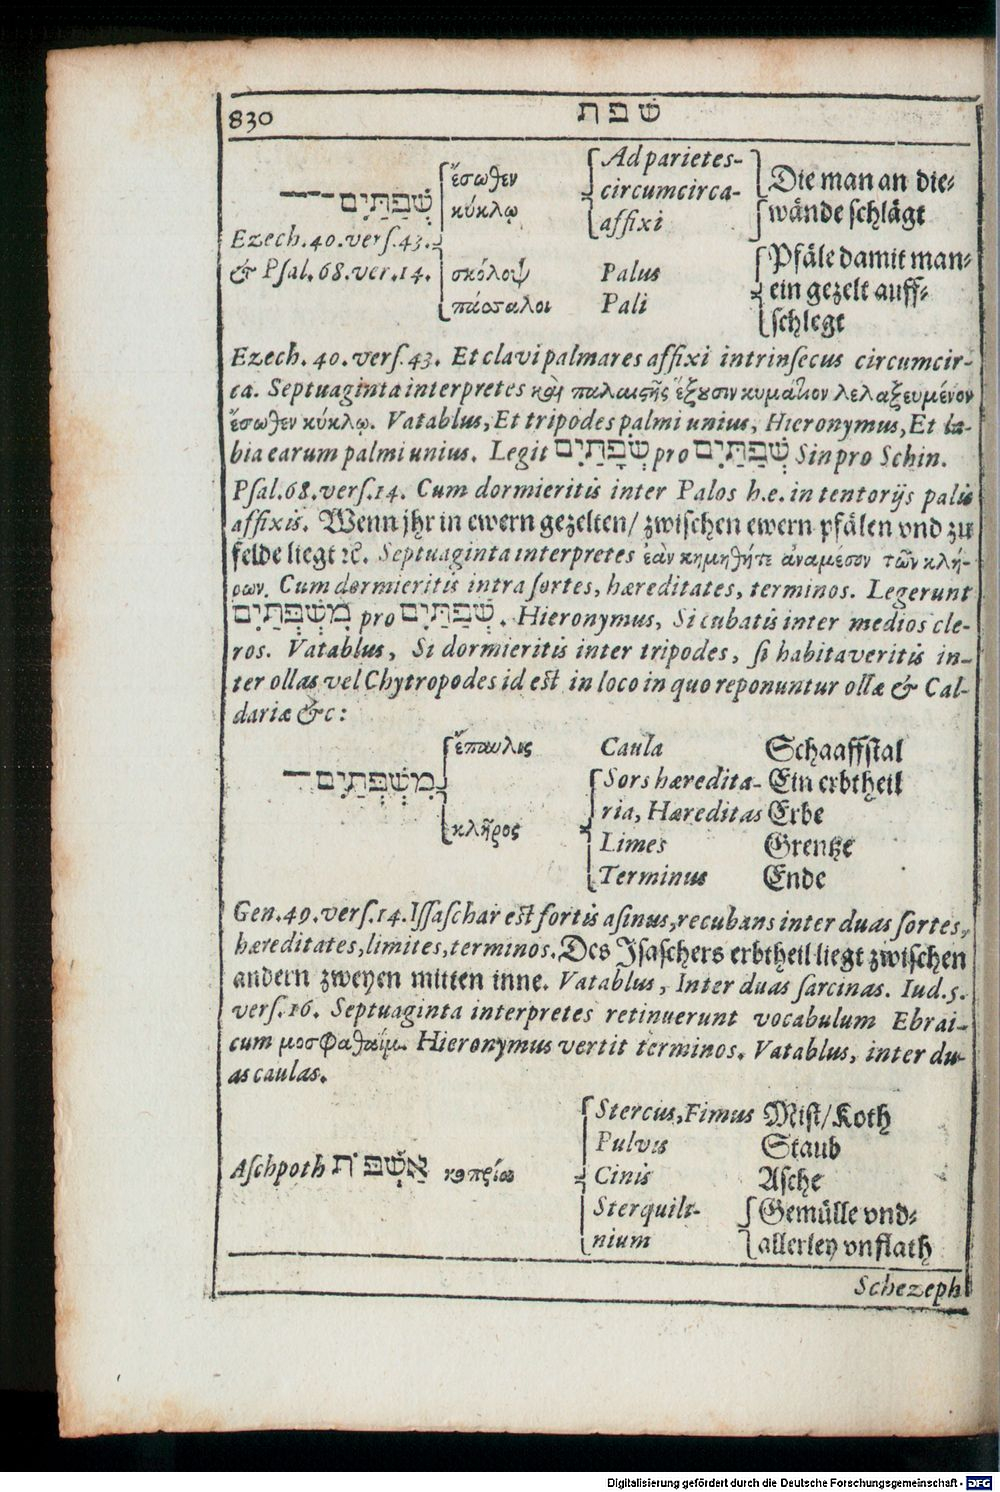 830 שפת
שְׁפַתַּיִם ἔσωθεν Ad parietes-
κύκλῳ circumcirca- Die man an die⸗
affixi wände schlägt
Ezech. 40. vers. 43.
& Psal. 68. ver. 14. σκόλοψ Palus Pfäle damit man⸗
πάσσαλοι Pali ein gezelt auff⸗
schlegt
Ezech. 40. vers. 43. Et clavi palmares affixi intrinsecus circumcir-
ca. Septuaginta interpretes καὶ παλαιστῆς ἕξουσιν κυμάτιον λελαξευμένον
ἔσωθεν κύκλῳ. Vatablus, Et tripodes palmi unius, Hieronymus, Et la-
bia earum palmi unius. Legit שְׂפָתַיִם pro שְׁפַתַּיִם Sin pro Schin.
Psal. 68. vers. 14. Cum dormieritis inter Palos h.e. in tentorijs palis
affixis. Wenn jhr in ewern gezelten/ zwischen ewern pfälen vnd zu
felde liegt ꝛc. Septuaginta interpretes ἐὰν κημηθῆτε ἀναμεσον τῶν κλή-
ρων. Cum dormieritis intra sortes, hæreditates, terminos. Legerunt
מִשְׁפְּתַיִם pro שְׁפַתַּיִם. Hieronymus, Si cubatis inter medios cle-
ros. Vatablus, Si dormieritis inter tripodes, si habitaveritis in-
ter ollas vel Chytropodes id est in loco in quo reponuntur ollæ & Cal-
dariæ &c:
ἔπαυλις Caula Schaaffstal
מִשְׁפְּתַיִם Sors hæredita- Ein erbtheil
ria, Hæreditas Erbe
κλῆρος Limes Grentze
Terminus Ende
Gen. 49. vers. 14. Issaschar est fortis asinus, recubans inter duas sortes,
hæreditates, limites, terminos. Des Isaschers erbtheil liegt zwischen
andern zweyen mitten inne. Vatablus, Inter duas sarcinas. Iud. 5.
vers. 16. Septuaginta interpretes retinuerunt vocabulum Ebrai-
cum μοσφαθαΐμ. Hieronymus vertit terminos. Vatablus, inter du-
as caulas.
Stercus, Fimus Mist/Koth
Pulvis Staub
Aschpoth אַשְׁפֹּת κοπρία Cinis Asche
Sterquili- Gemülle vnd⸗
nium allerley vnflath
Schezeph
Digitalisierung gefördert durch die Deutsche Forschungsgemeinschaft - DFG